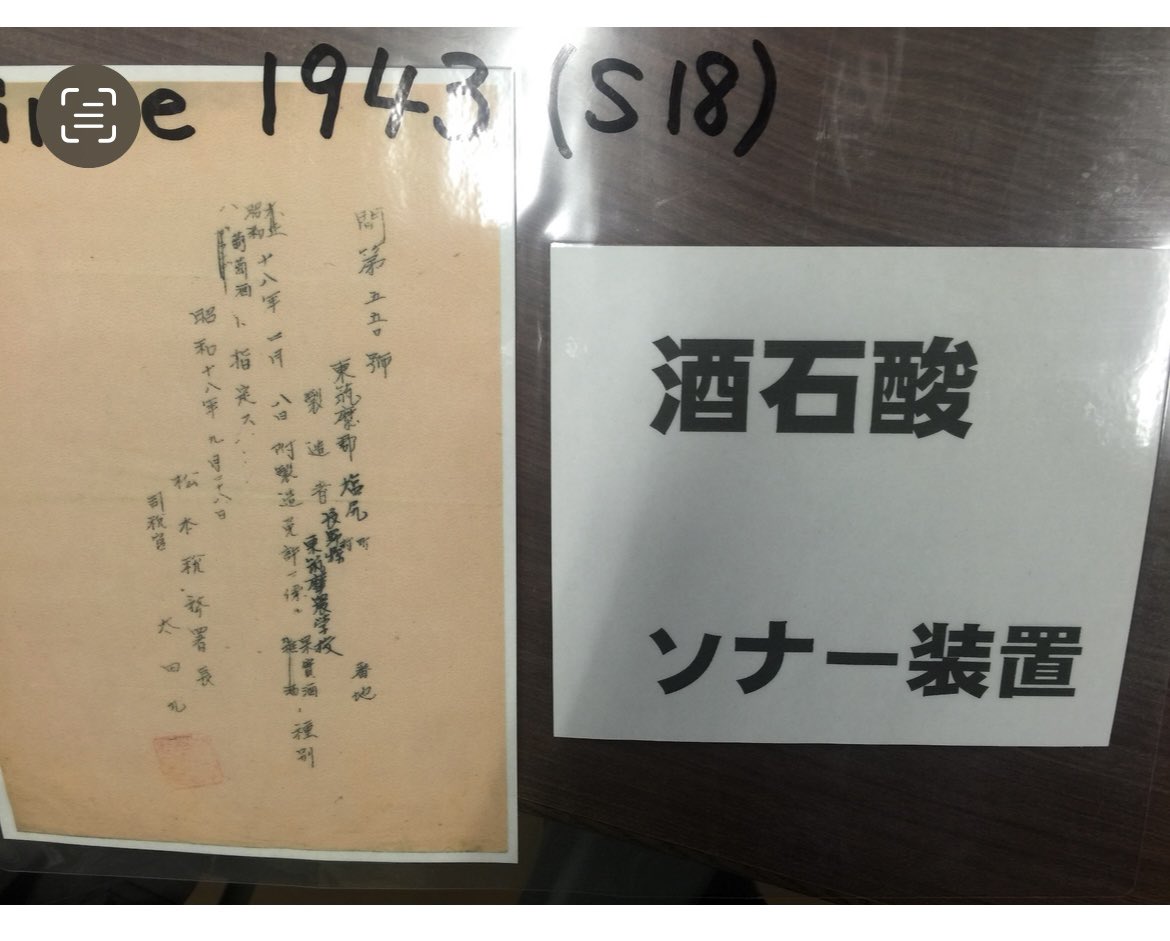 1943 (S18)
間第五五〇號
東筑摩郡塩尻町村 番地
製造者 長野県東筑摩農学校
昭和十八年 月八日附製造免許ニ係ル果實酒 種別
ハ葡萄酒ト指定ス
昭和十八年九月二十八日
松本税務署長
司税官 太田
酒石酸
ソナー装置